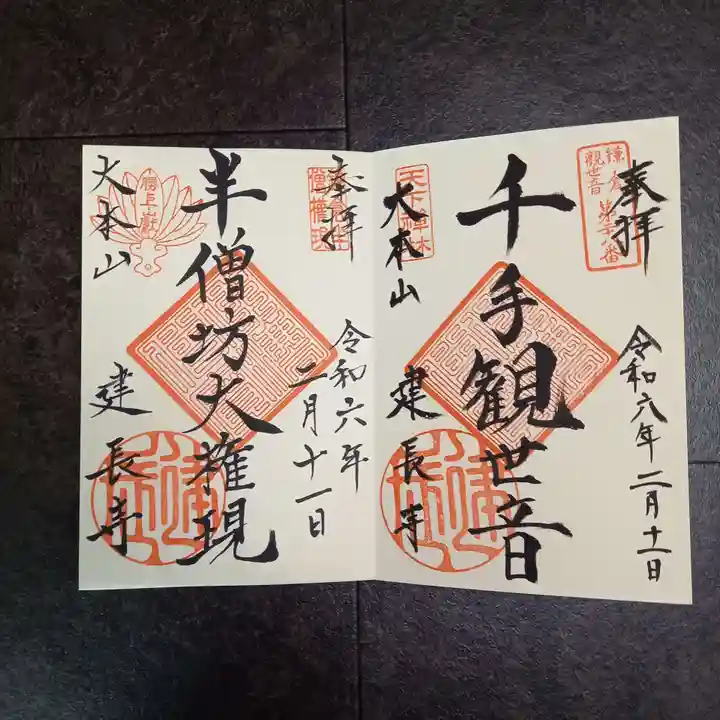 奉拝
鎌倉
観世音
第二十八番
千手観世音
令和六年二月十一日
天下禅林
大本山
建長寺
奉拝
半僧坊大権現
令和六年
二月十一日
勝上嶽
大本山
建長寺